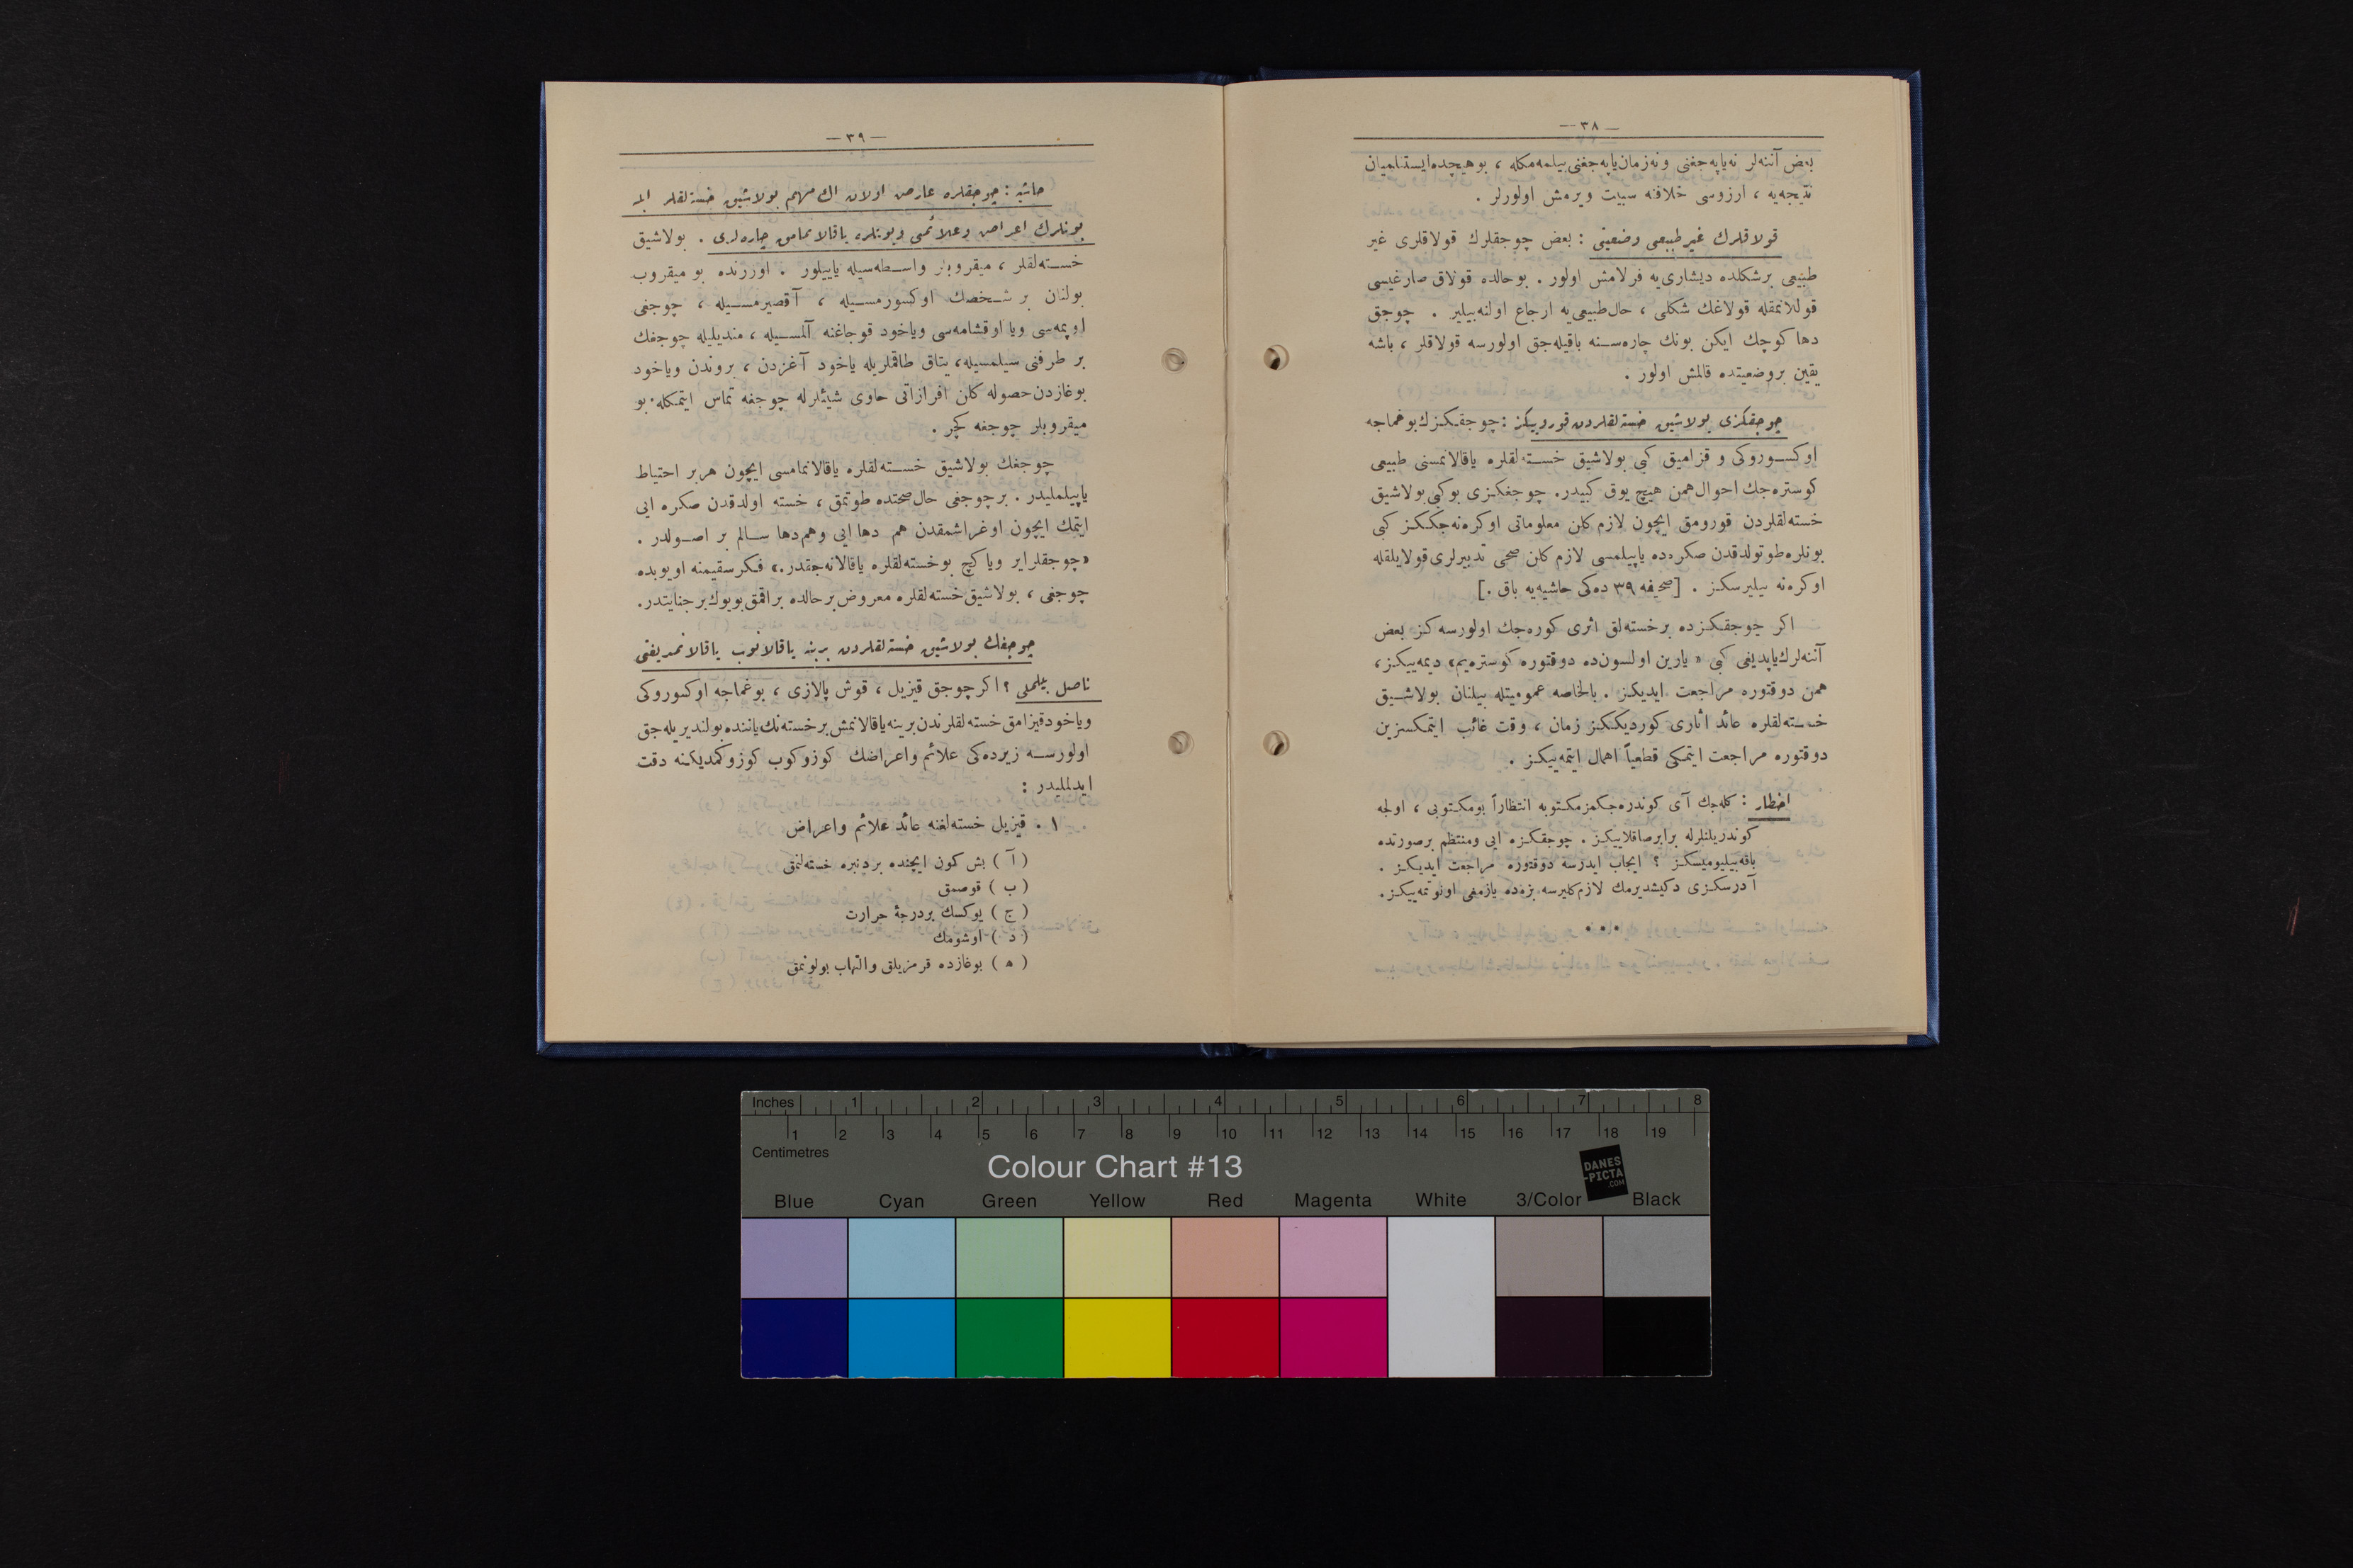 — ٣٨ —
بعض آننه‌لر نه‌یاپه‌جغنی ونه‌زمان‌یاپه‌جغنی‌بیلمه‌مكله ، بوهیچده‌ایستنلمیان
نتیجه‌یه ، ارزوسی خلافنه سبیت ویرمش اولورلر .
قولاقلرك غیرطبیعی وضعیتی : بعض چوجقلرك قولاقلری غیر
طبیعی برشكلده دیشاری‌یه فرلامش اولور . بوحالده قولاق صارغیسی
قوللانمقله قولاغك شكلی ، حال‌طبیعی‌یه ارجاع اولنه‌بیلیر . چوجق
دها كوچك ایكن بونك چاره‌سنه باقیله‌جق اولورسه قولاقلر ، باشه
یقین بروضعیتده قالمش اولور .
چوجقكزی بولاشیق خسته‌لقلردن قورویكز : چوجقكزك‌بوغماجه
اوكسوروكی و قزامیق كبی بولاشیق خسته‌لقلره یاقالانمسنی طبیعی
كوستره‌جك احوال‌همن هیچ یوق كبیدر. چوجغكزی بوكبی‌بولاشیق
خسته‌لقلردن قورومق ایچون لازم كلن معلوماتی اوكره‌نه‌جككز كبی
بونلره‌طوتولدقدن صكره‌ده یاپیلمسی لازم كلن صحی تدبیرلری‌قولایلقله
اوكره‌نه بیلیرسكز . [صحیفه ٣٩ ده‌كی حاشیه‌یه باق .]
اكر چوجقكزده برخسته‌لق اثری كوره‌جك اولورسه‌كز بعض
آننه‌لرك‌یاپدیغی كبی « یارین اولسون‌ده دوقتوره كوستره‌یم» دیمه‌ییكز،
همن دوقتوره مراجعت ایدیكز . بالخاصه عمومیتله بیلنان بولاشیق
خسته‌لقلره عائد اثاری كوردیككز زمان ، وقت غائب ایتمكسزین
دوقتوره مراجعت ایتمكی قطعیاً اهمال ایتمه‌ییكز .
اخطار : كله‌جك آی كوندره‌جكمزمكتوبه انتظاراً بومكتوبی ، اولجه
كوندریلنلرله برابرصاقلاییكز . چوجقكزه ایی ومنتظم برصورتده
باقه‌بیلیومیسكز ؟ ایجاب ایدرسه دوقتوره مراجعت ایدیكز .
آدرسكزی دكیشدیرمك لازم‌كلیرسه بزه‌ده یازمغی اونوتمه‌ییكز.
• • •
— ٣٩ —
حاشیه : چوجقلره عارض اولان اك مهم بولاشیق خسته‌لقلر ایله
بونلرك اعراض وعلائمی وبونلره یاقالانمامق چاره‌لری . بولاشیق
خسته‌لقلر ، میقروبلر واسطه‌سیله یاییلور . اوزرنده بو میقروب
بولنان بر شخصك اوكسورمسیله ، آقصیرمسیله ، چوجغی
اوپمه‌سی ویا اوقشامه‌سی ویاخود قوجاغنه آلمسیله ، مندیلیله چوجغك
بر طرفنی سیلمسیله، یتاق طاقملریله یاخود آغزدن ، بروندن ویاخود
بوغازدن حصوله كلن افرازاتی حاوی شیئلرله چوجغه تماس ایتمكله بو
میقروبلر چوجغه كچر .
چوجغك بولاشیق خسته‌لقلره یاقالانمامسی ایچون هربر احتیاط
یاپیلملیدر . برچوجغی حال صحتده طوتمق ، خسته اولدقدن صكره ایی
ایتمك ایچون اوغراشمقدن هم دها ایی وهم‌دها سالم بر اصولدر .
«چوجقلرایر ویا كچ بوخسته‌لقلره یاقالانه‌جقدر.» فكرسقیمنه اویوبده
چوجغی ، بولاشیق خسته‌لقلره معروض‌برحالده براقمق بویوك‌برجنایتدر.
چوجغك بولاشیق خسته‌لقلردن برینه یاقالانوب یاقالانمدیغی
ناصل بیلملی ؟ اكرچوجق قیزیل ، قوش پالازی ، بوغماجه اوكسوروكی
ویاخودقیزامق خسته‌لقلرندن‌برینه‌یاقالانمش‌برخسته‌نك‌یاننده‌بولندیریله‌جق
اولورسه زیرده‌كی علائم واعراضك كوزوكوب كوزوكمدیكنه دقت
ایدلملیدر :
١ . قیزیل خسته‌لغنه عائد علائم واعراض
( آ ) بش كون ایچنده بردنبره خسته‌لنمق
( ب ) قوصمق
( ج ) یوكسك بردرجهٔ حرارت
( د ) اوشومك
( ه ) بوغازده قرمزیلق والتهاب بولونمق
Inches 1 2 3 4 5 6 7 8
1 2 3 4 5 6 7 8 9 10 11 12 13 14 15 16 17 18 19
Centimetres
Colour Chart #13
DANES
-PICTA
.COM
Blue Cyan Green Yellow Red Magenta White 3/Color Black